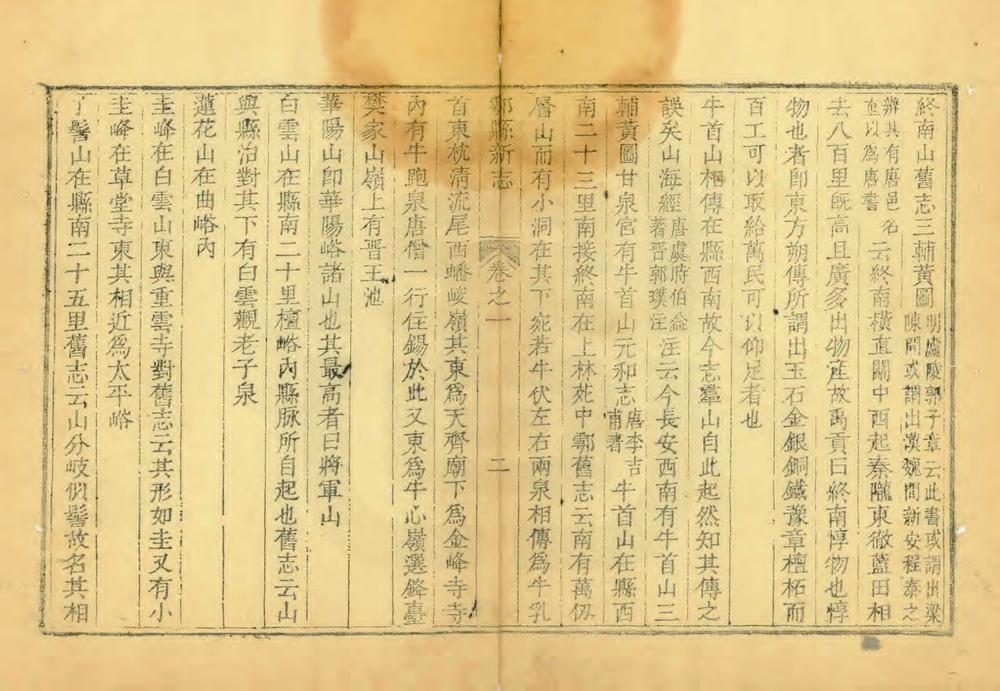 終南山舊志三輔黃圖明盧陵郭子章云此書或謂出梁陳間或謂出漢魏間新安程泰之
辨其有唐邑名並以爲唐書云終南橫直關中西起秦隴東徹藍田相
去八百里旣高且廣多出物產故禹貢曰終南惇物也惇
物也者卽東方朔傳所謂出玉石金銀銅鐵豫章檀柘而
百工可以取給萬民可以仰足者也
牛首山相傳在縣西南故今志羣山自此起然知其傳之
誤矣山海經唐虞時伯益著晋郭璞注注云今長安西南有牛首山三
輔黃圖甘泉宮有牛首山元和志唐李吉甫著牛首山在縣西
南二十三里南接終南在上林苑中鄠舊志云南有萬仭
層山而有小洞在其下宛若牛伏左右兩泉相傳爲牛乳
鄠縣新志 卷之一 二
首東枕淸流尾西蟠峻嶺其東爲天齊廟下爲金峰寺寺
內有牛跑泉唐僧一行住錫於此又東爲牛心嶺選鋒臺
樊家山嶺上有晋王池
華陽山卽華陽峪諸山也其最高者曰將軍山
白雲山在縣南二十里檀峪內縣脉所自起也舊志云山
與縣治對其下有白雲觀老子泉
蓮花山在曲峪內
圭峰在白雲山東與重雲寺對舊志云其形如圭又有小
圭峰在草堂寺東其相近爲太平峪
了髻山在縣南二十五里舊志云山分岐似髻故名其相